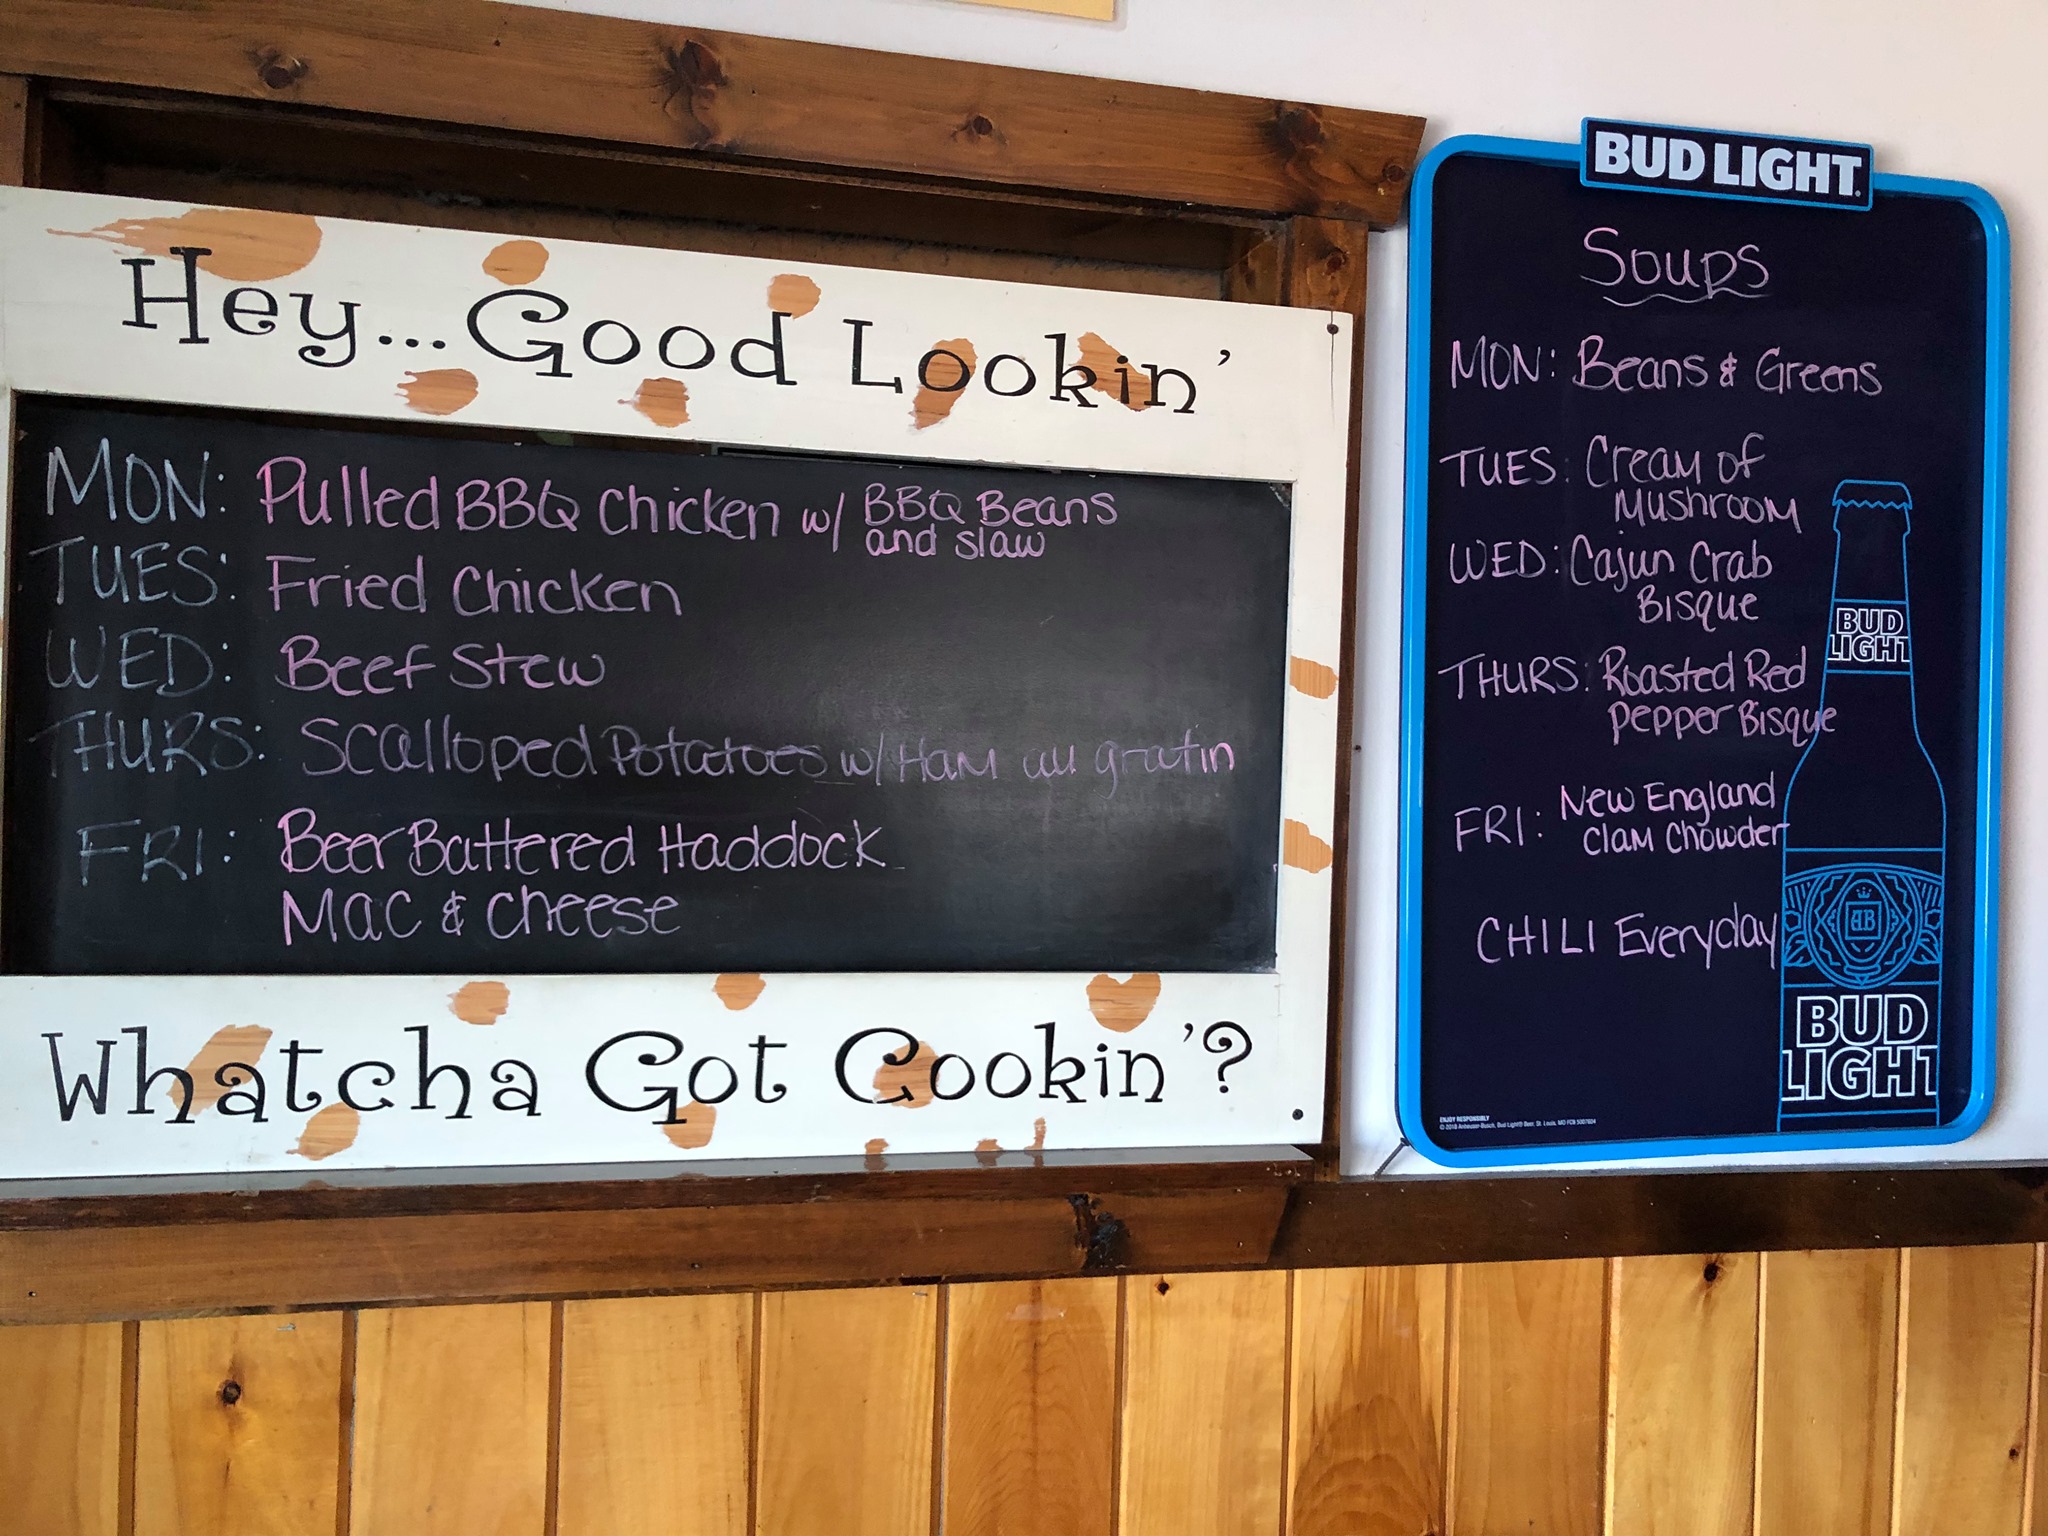 Hey...Good Lookin'
MON: Pulled BBQ Chicken w/ BBQ Beans
and slaw
TUES: Fried Chicken
WED: Beef Stew
THURS: Scalloped Potatoes w/ Ham au gratin
FRI: Beer Battered Haddock
Mac & Cheese
Whatcha Got Cookin'?
BUD LIGHT
Soups
MON: Beans & Greens
TUES: Cream of
Mushroom
WED: Cajun Crab
Bisque
THURS: Roasted Red
Pepper Bisque
FRI: New England
Clam Chowder
CHILI Everyday
BUD
LIGHT
BUD
LIGHT
ENJOY RESPONSIBLY
© 2018 Anheuser-Busch, Bud Light® Beer, St. Louis, MO